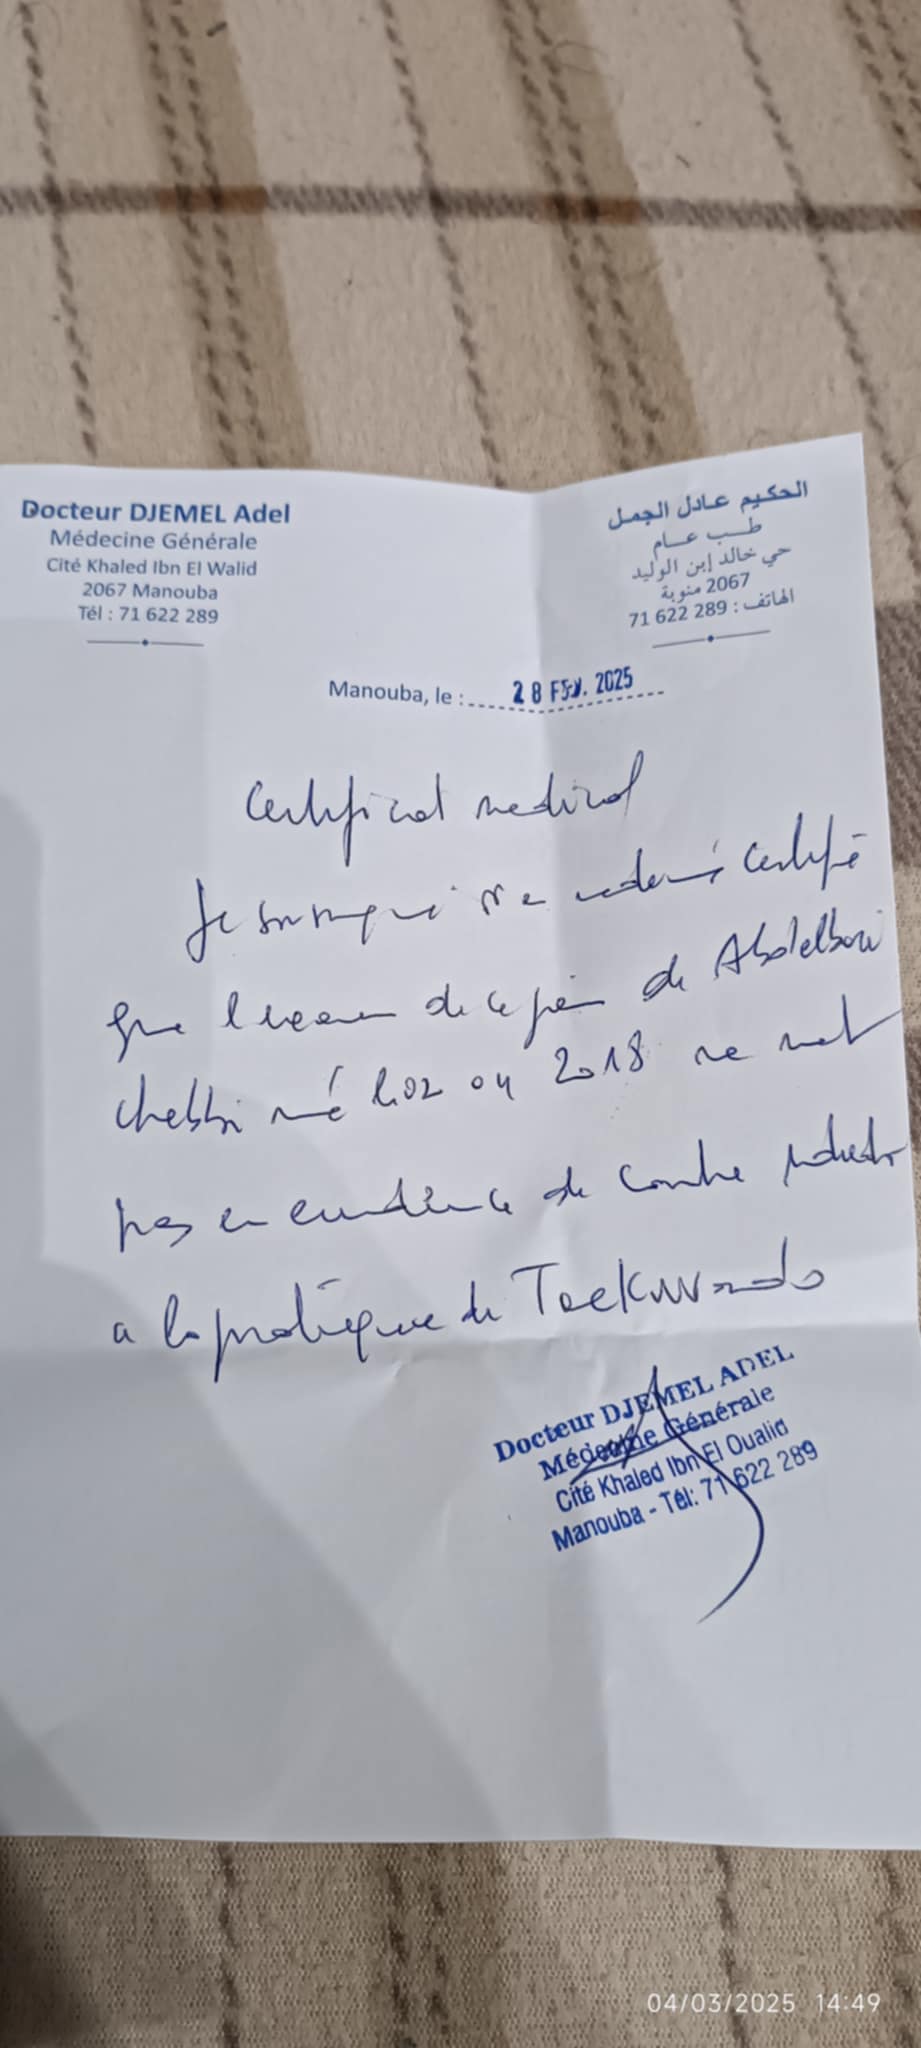 Docteur DJEMEL Adel
Médecine Générale
Cité Khaled Ibn El Walid
2067 Manouba
Tél : 71 622 289
الحكيم عادل الجمل
طب عام
حي خالد إبن الوليد
2067 منوبة
الهاتف : 289 622 71
Manouba, le : 28 FEV. 2025
Certificat medical
Je certifie
que l'examen de ce jour de Abdelbari
Chebbi né le 02 04 2018 ne met
pas en evidence de contre indication
a la pratique de Taekwondo
Docteur DJEMEL ADEL
Médecine Générale
Cité Khaled Ibn El Oualid
Manouba - Tél: 71 622 289
04/03/2025 14:49